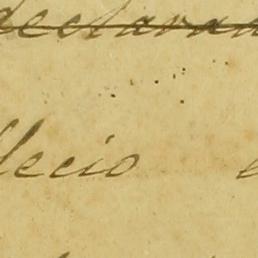 declarad
llecio e